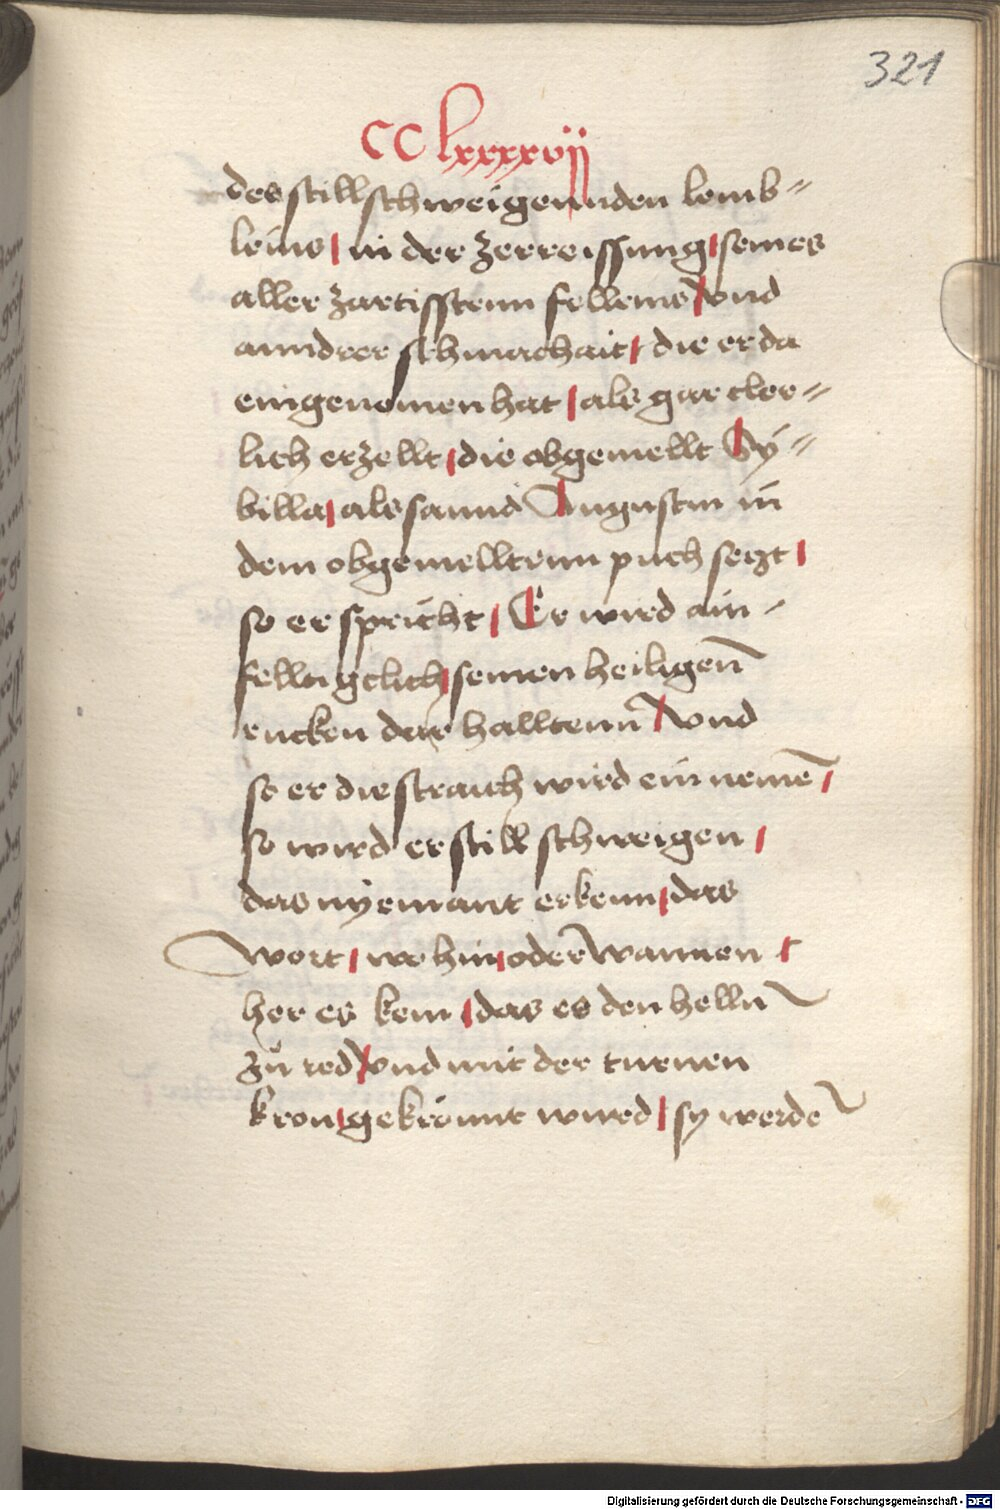 321
CC lxxxxvij
des stillschweigennden lemb=
leins | in der zerreissung | seines
aller zartisstenn fellems | vnd
anndrer schmachait | die er da
eingenomen hat | als gar cler=
lich erzellt | die obgemellt Sy=
billa | als sannd Augustin in
dem obgemelltenn puch setzt |
so er spricht | Er wird ain
felltigclich | seinen heiligen̄
rucken dar halltenn | vnd
so er die straich wird ein nemē |
so wird er still schweigen |
das nyemant erkenn | das
wort | wo hin | oder wannen
her es kem | das es den helln
zů red | vnd mit der turnen
kron | gekrönnt wurd | sy werdē
Digitalisierung gefördert durch die Deutsche Forschungsgemeinschaft - DFG